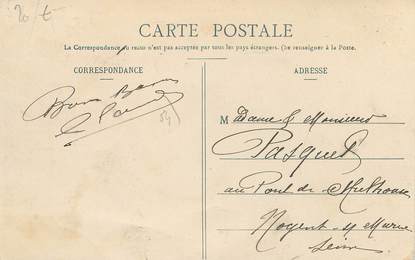 CARTE POSTALE
La Correspondance au recto n'est pas acceptée par tous les pays étrangers. (Se renseigner à la Poste.
CORRESPONDANCE
ADRESSE
Bons
M dame & Monsieur
Pasquet
au Pont de Mulhouse
Nogent s/ Marne
Seine